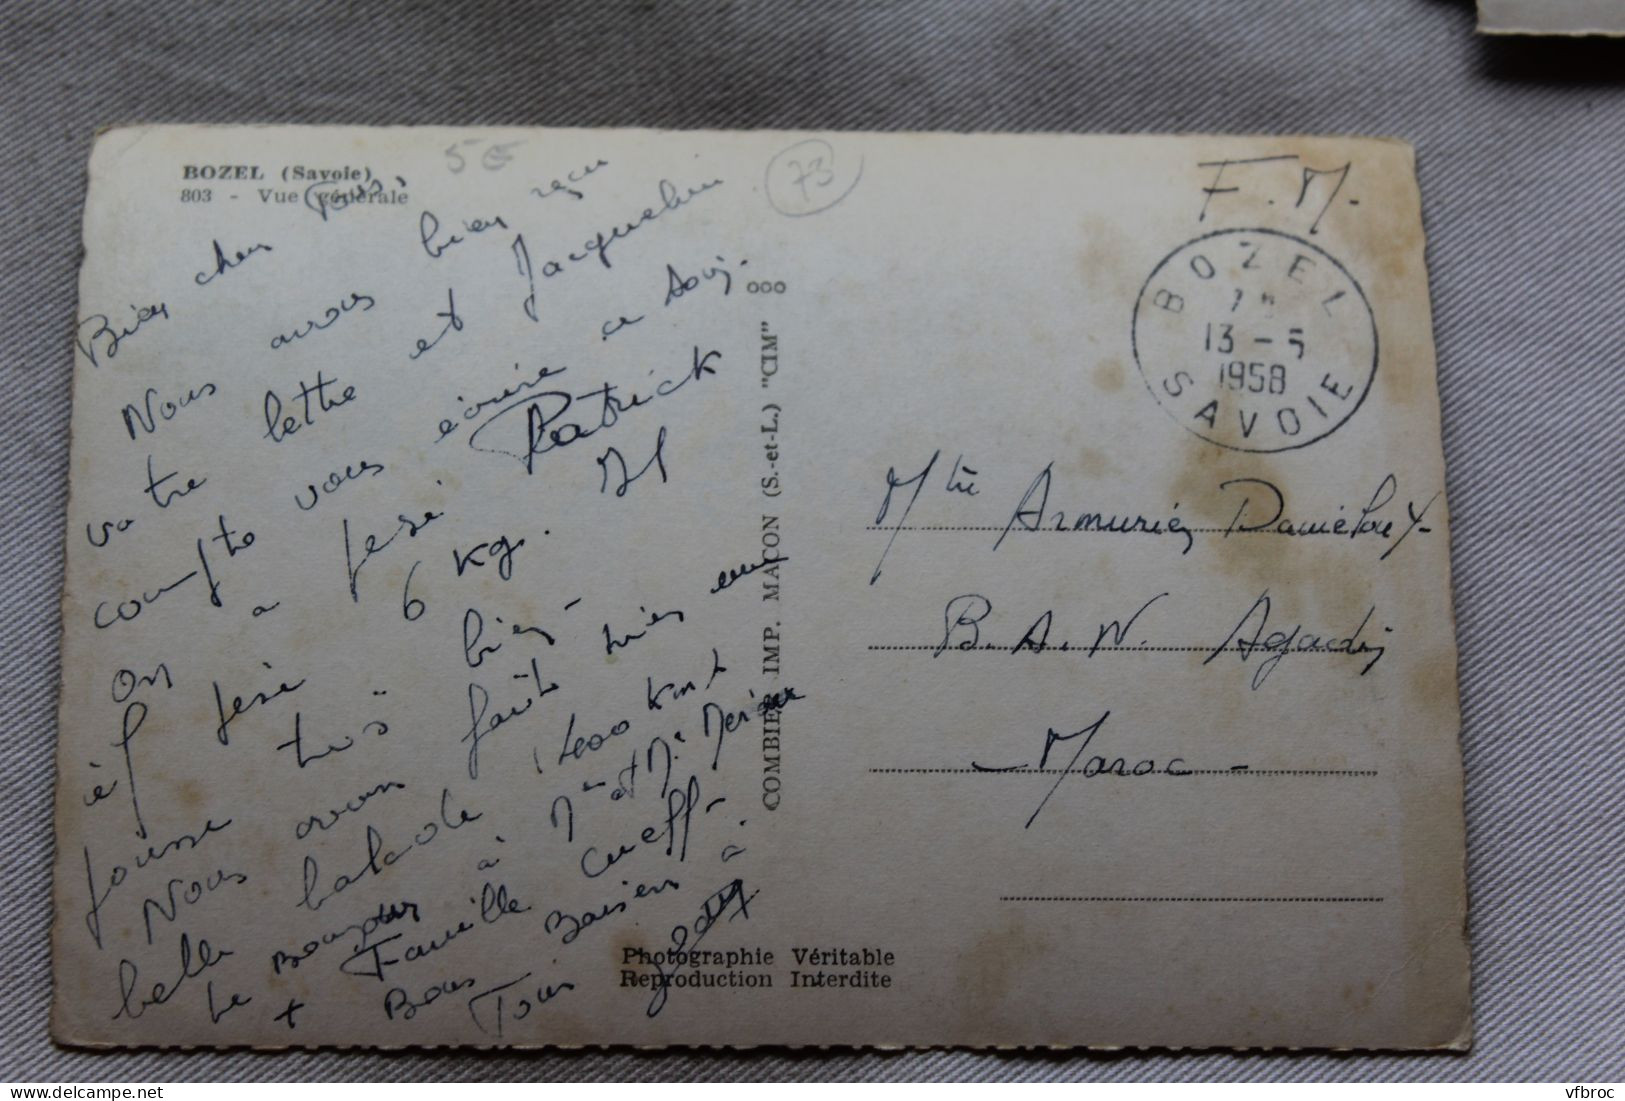 BOZEL (Savoie)
803 - Vue générale
5€
73
F.M.
BOZEL
13-5
1958
SAVOIE
Bien chers Tous,
Nous avons bien reçu
votre lettre et Jacqueline
compte vous écrire ce soir.
On a pesé Patrick
il pèse 6 kg.
tousse très bien
Nous avons fait hier une
belle balade (400 km)
le Bonjour à Mme et Mr
+ Famille Cueff-
Bons Baisers à
Tous
Mtre Armurier
B.A.N. Agadir
- Maroc -
ooo
COMBIER IMP. MACON (S.-et-L.) "CIM"
Photographie Véritable
Reproduction Interdite
vfbroc